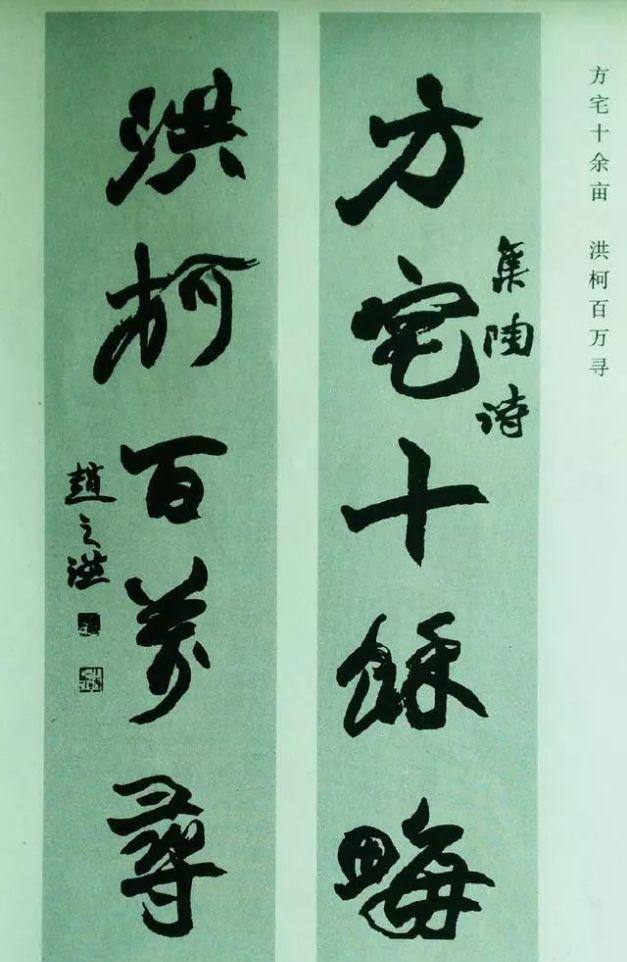 方宅十余亩 洪柯百万寻
集陶诗
方宅十餘畮
洪柯百萬尋
趙之洪